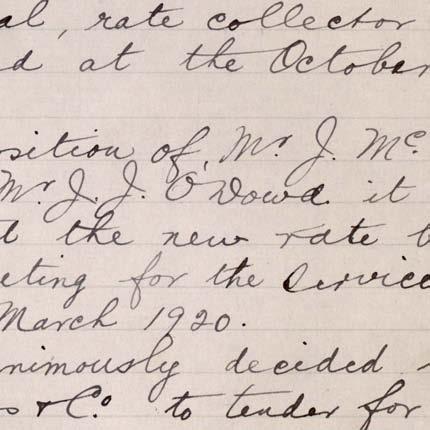 al, rate collector
d at the October
sition of Mr J. Mc.
Mr J. J. O'Dowd it
d the new rate b
eting for the service
March 1920.
nimously decided
s & Co. to tender for